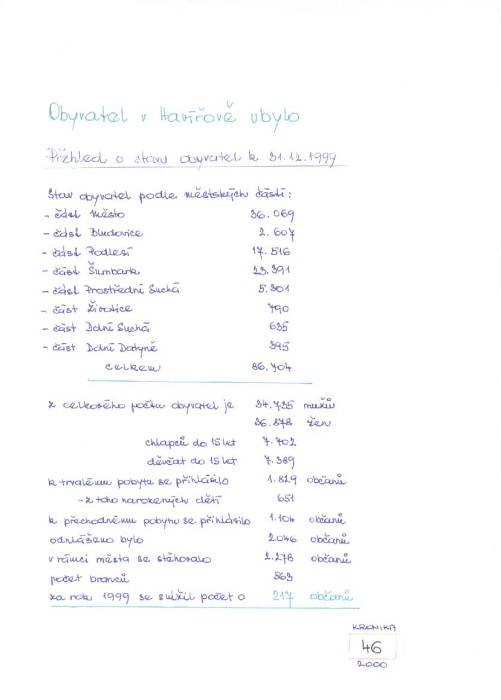 Obyvatel v Havířově ubylo
Přehled o stavu obyvatel k 31.12.1999
Stav obyvatel podle městských částí:
- část Město 36.069
- část Bludovice 2.607
- část Podlesí 17.516
- část Šumbark 23.391
- část Prostřední Suchá 5.301
- část Životice 790
- část Dolní Suchá 635
- část Dolní Datyně 395
celkem 86.704
z celkového počtu obyvatel je 34.735 mužů
36.878 žen
chlapců do 15 let 7.702
děvčat do 15 let 7.389
k trvalému pobytu se přihlásilo 1.829 občanů
- z toho narozených dětí 651
k přechodnému pobytu se přihlásilo 1.104 občanů
odhlášeno bylo 2046 občanů
v rámci města se stěhovalo 2.278 občanů
počet branců 563
za rok 1999 se snížil počet o 217 občanů
KRONIKA
46
2000